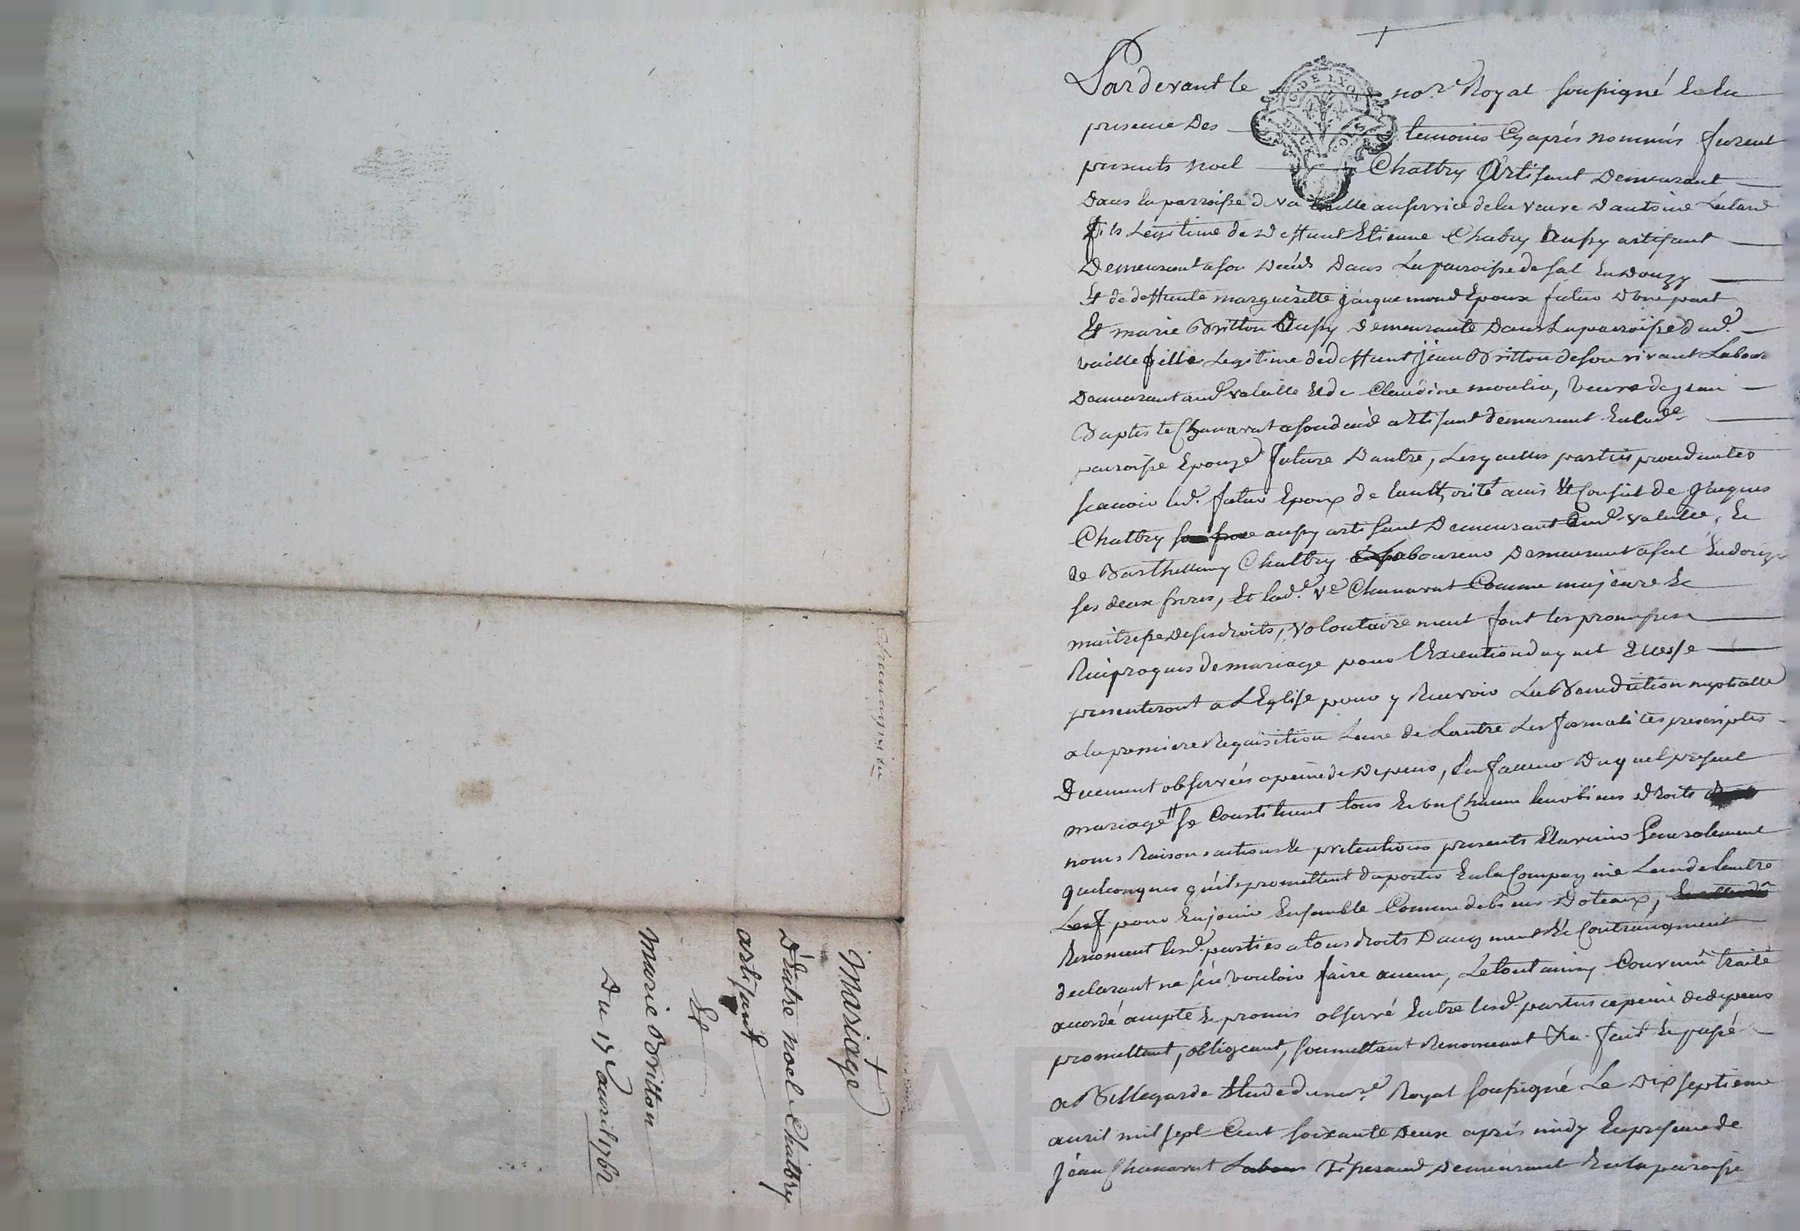 Pardevant le no.re Royal soussigné & en la
presence des temoins cy après nommés furent
presents noel Chattry Artisant Demeurant
Dans la parroisse de valeille au service de la veuve D antoine
fils Legitime de deffunt Etienne Chatry aussy artisant
Demeurant a son Décéds Dans La paroisse de sal En Donzy
Et de deffunte margueritte jacquemond Epoux futur D'une part
Et marie Britton Aussy demeurante Dans La paroisse dud.
vaille fille Legitime de deffunt jean Britton de son vivant Labour
Demeurant aud. valeille Et de Claudine moulin, veuve de jean
Baptiste Chanavat a son decéd artisant demeurant En lad.e
paroisse Epouze future D'autre, Lesquelles parties procedantes
scavoir led. futur Epoux de l'authorité avis Et Conseil de jacques
Chattry aussy artisant Demeurant aud. valeille, Et
de Barthellemy Chattry Laboureur Demeurant a sal En donzy
ses deux freres, Et lad. v.e Chanavat Comme majeure Et
maitresse de ses droits, volontairement font les promesses
Reciproques de mariage pour l'Execution duquel Elles se
presenteront a L'Eglise pour y Recevoir La Benediction nuptialle
a la premiere Requisition Lune de Lautre Les formalités prescriptes
Duement observées a peine de Depens, En faveur Duquel present
mariage se Constituent tous Et un Chacun leurs biens droits
noms Raisons actions Et pretentions presents Et avenir Generalement
quelconques qu'ils promettent d'aporter En la Compagnie Lun de lautre
pour En jouir Ensemble Comme de biens Doteaux,
Renoncent lesd. parties a tous droits D'augment Et Contraugment
declarant ne s'en vouloir faire aucun, Le tout ainsy Convenu traité
accordé accepté Et promis observé Entre lesd. parties a peine de depens
promettant, obligeant, soumettant Renonceant &a. fait Et passé
a Bellegarde Etude du no.re Royal soussigné Le Dix septieme
avril mil sept Cent soixante Deux après midy En presence de
jean Chanavat Tisserand Demeurant En la paroisse
Mariage
D'Entre noel Chattry
artisant
Et
Marie Britton
Du 17 avril 1762
G. DE LYON